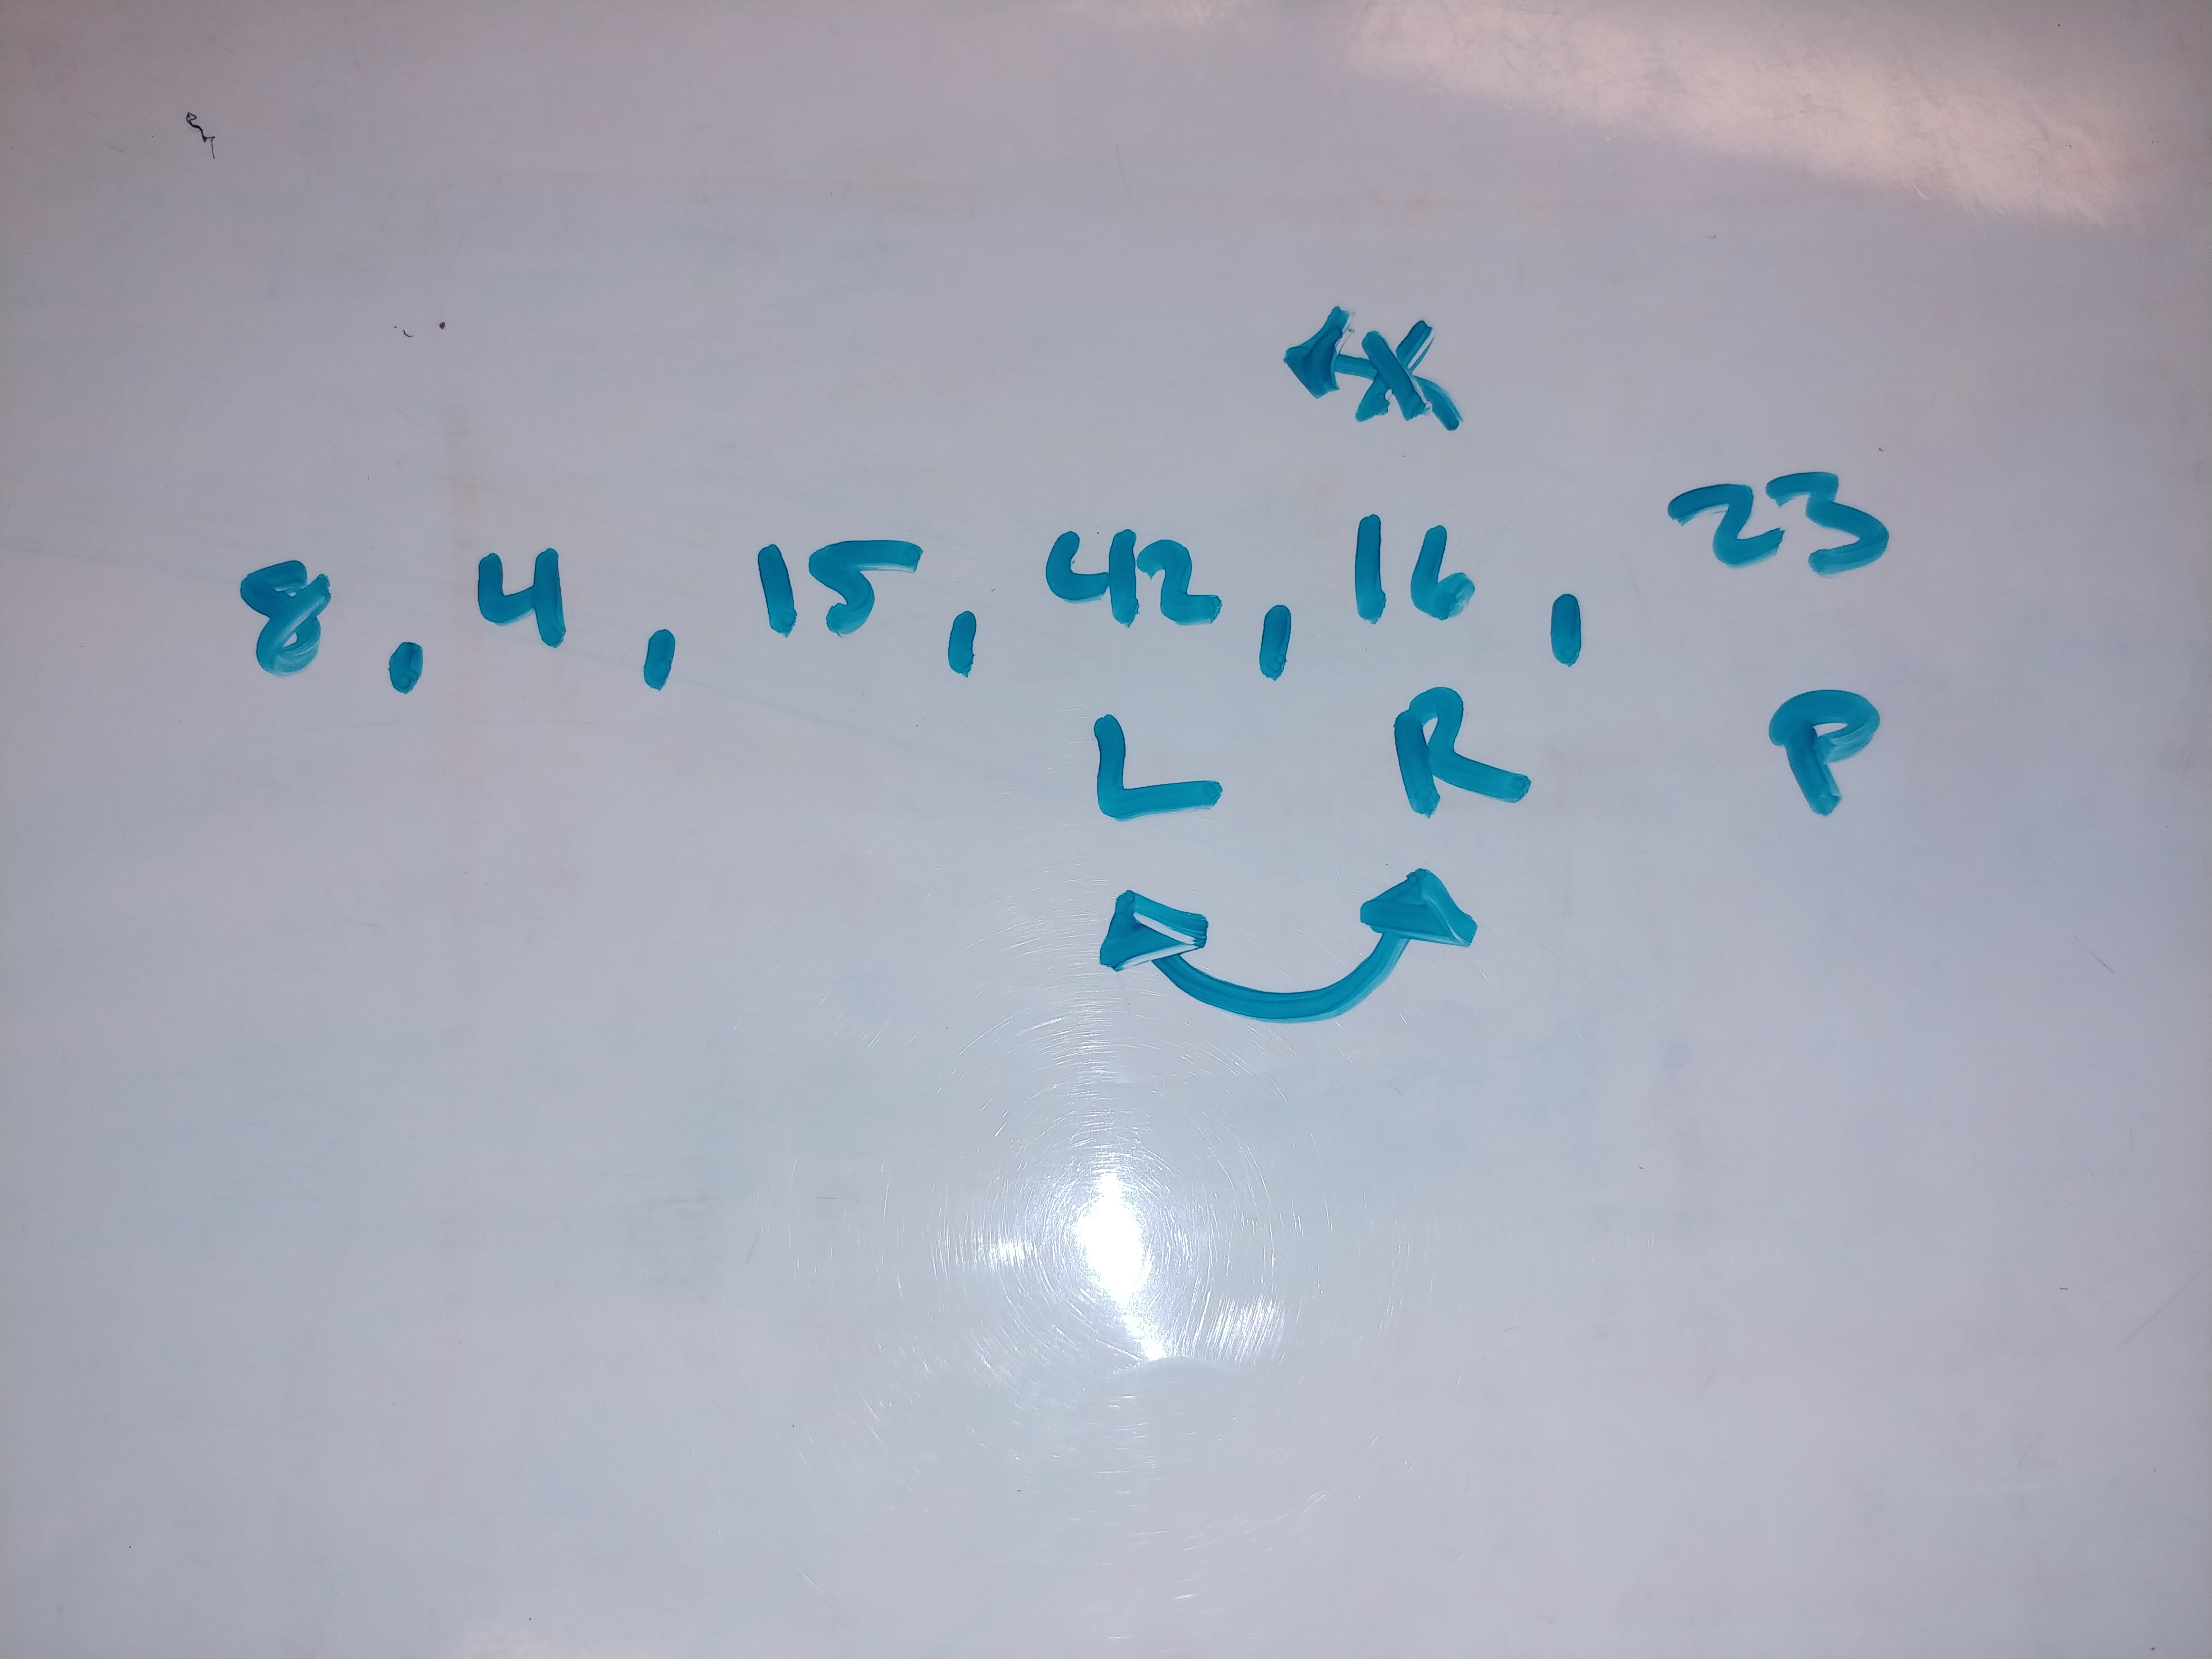 8, 4, 15, 42, 16, 23
L R P